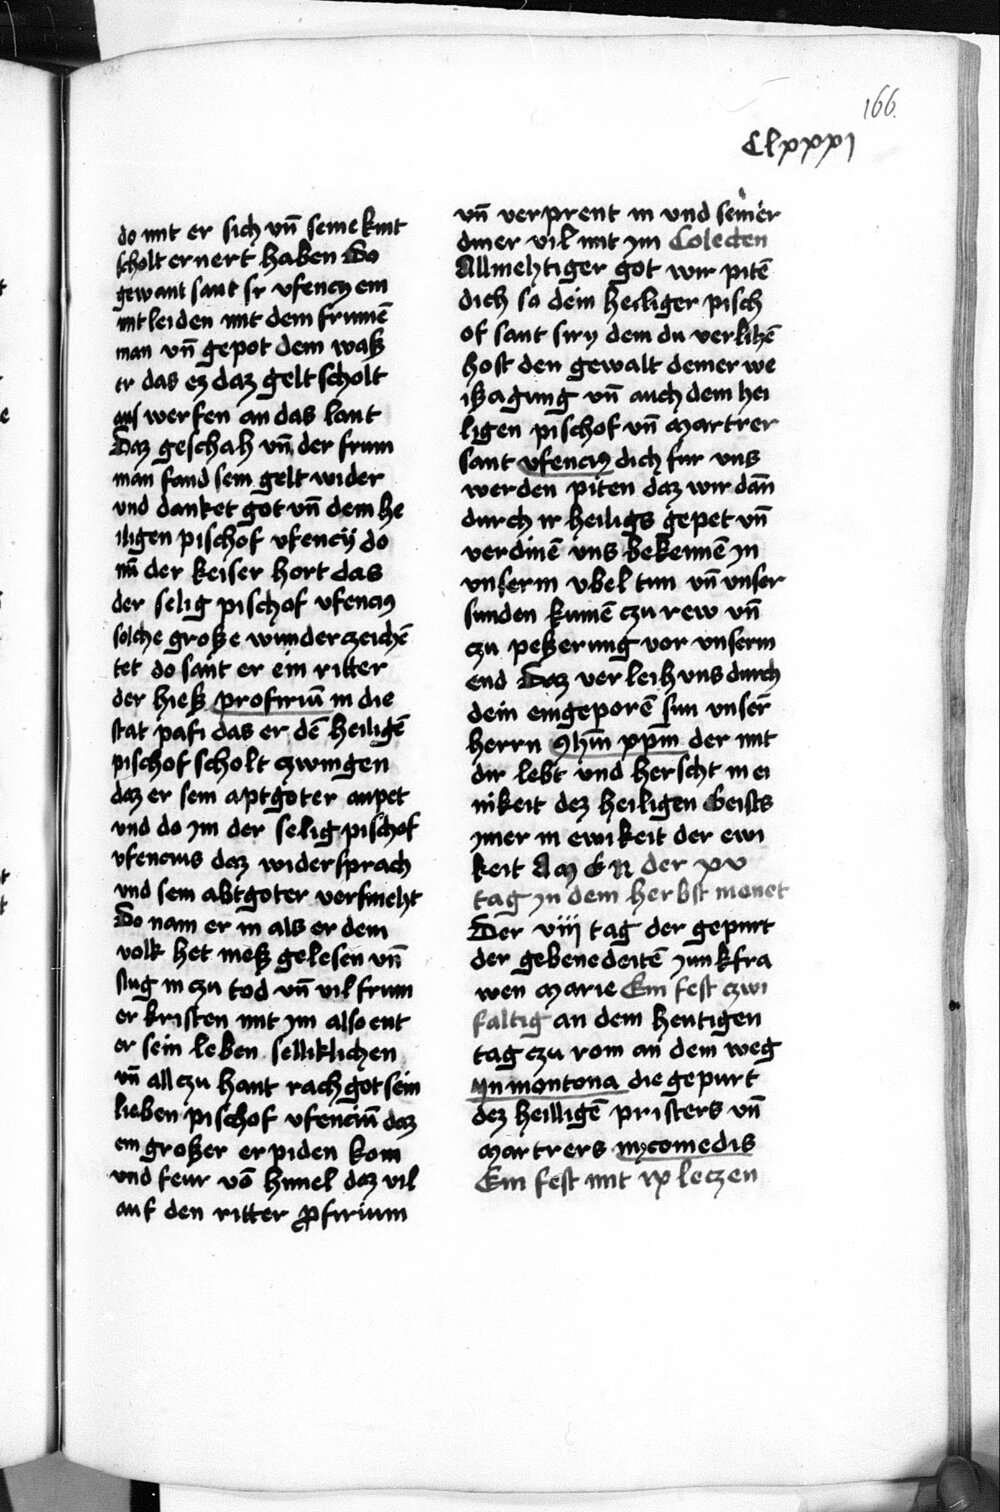 166.
Clxxxj
do mit er sich vn̄ seine kint
scholt ernert haben Do
gewant sant sr vfency ein
mitleiden mit dem frumē
man vn̄ gepot dem waß
er das ez daz gelt scholt
aus werfen an das lant
Daz geschah vn̄ der frum
man fand sein gelt wider
vnd danket got vn̄ dem he
iligen pischof vfencij do
nū der keiser hort das
der selig pischof vfenciꝰ
solche große wunderzeichē
tet do sant er ein ritter
der hieß profiriū in die
stat pafi das er dē heiligē
pischof scholt czwingen
daz er sein aptgoter anpet
vnd do ym der selig pischof
vfencius daz widersprach
vnd sein abtgoter versmeht
Do nam er in als er dem
volk het meß gelesen vn̄
slug in czu tod vn̄ vil frum
er kristen mit ym also ent
er sein leben selliklichen
vn̄ all czu hant rach got sein
lieben pischof vfenciū daz
ein großer erpiden kom
vnd feur vō himel daz vil
auf den ritter ꝓfirium
vn̄ verprent in vnd seiner
diner vil mit ym Colecten
Allmehtiger got wir pitē
dich so dein heiliger pisch
of sant siry dem du verlihē
host den gewalt deiner we
ißagung vn̄ auch dem hei
ligen pischof vn̄ martrer
sant vfenciꝰ dich fur vns
werden piten daz wir dān
durch ir heiligs gepet vn̄
verdinē vns bekennē yn
vnserm vbel tun vn̄ vnser
sunden kumē czu rew vn̄
czu peßerung vor vnserm
end Daz verleih vns durch
dein eingeporē sun vnser̄
herrn yhm̄ xpm der mit
dir lebt vnd herscht in ei
nikeit dez heiligen Geists
ymer in ewikeit der ewi
keit AMEN der xv
tag yn dem herbst monet
Der viij tag der gepurt
der gebenedeitē junkfra
wen marie Ein fest czwi
faltig an dem heutigen
tag czu rom an dem weg
yn montona die gepurt
dez heilligē pristers vn̄
martrers nycomedis
Ein fest mit ix leczen